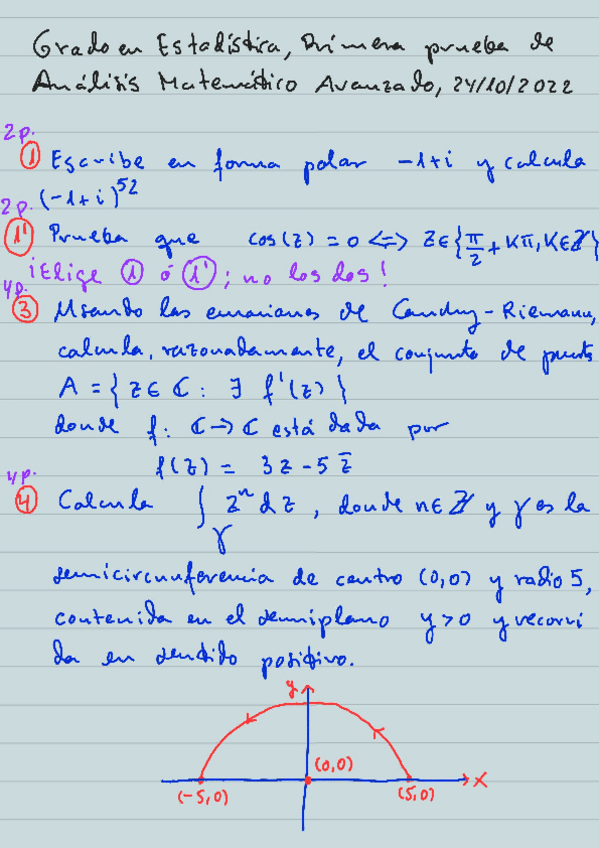 Grado en Estadística, Primera prueba de
Análisis Matemático Avanzado, 24/10/2022
2p.
① Escribe en forma polar -1+i y calcula
(-1+i)^52
2p.
①' Prueba que cos(z) = 0 <=> z∈{π/2 + Kπ, K∈ℤ}
¡Elige ① ó ①'; no los dos!
4p.
③ Usando las ecuaciones de Cauchy-Riemann,
calcula, razonadamente, el conjunto de puntos
A = {z∈ ℂ : ∃ f'(z)}
donde f: ℂ→ℂ está dada por
f(z) = 3z-5z̄
4p.
④ Calcula ∫_γ z^n dz, donde n∈ℤ y γ es la
semicircunferencia de centro (0,0) y radio 5,
contenida en el semiplano y>0 y recorri
da en sentido positivo.
y
(0,0)
x
(-5,0) (5,0)